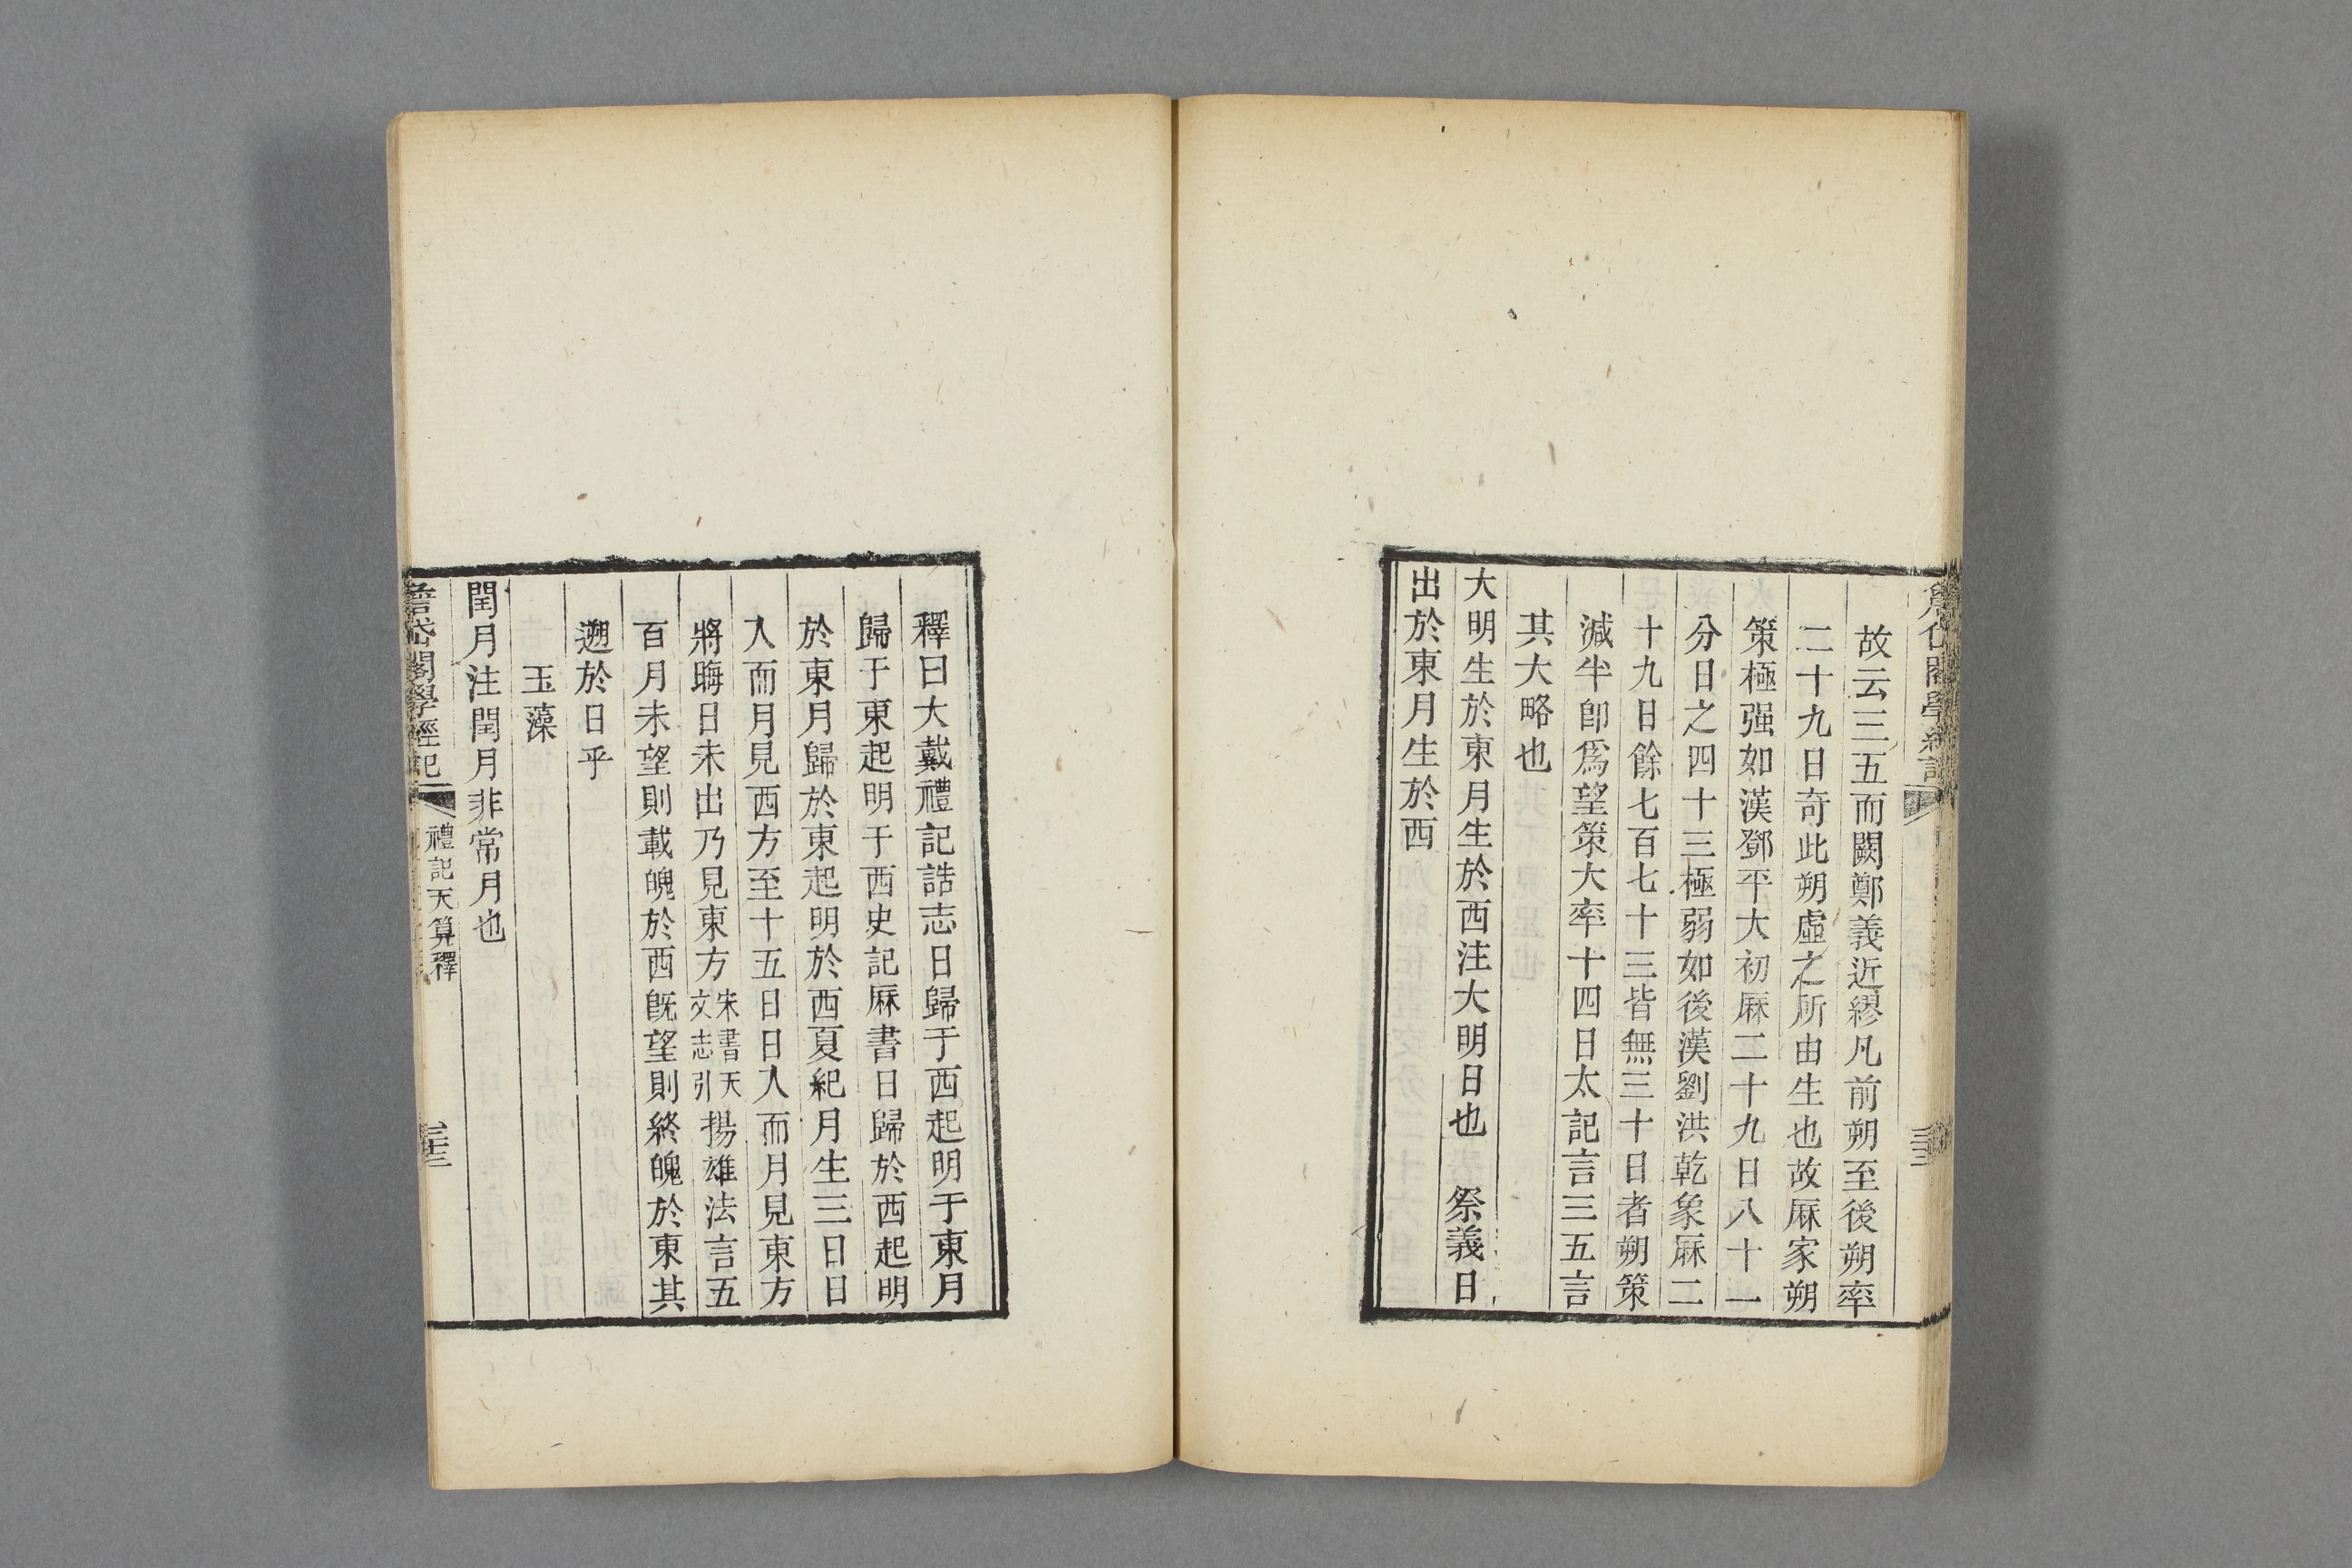 故云三五而闕鄭義近繆凡前朔至後朔率
二十九日奇此朔虛之所由生也故厤家朔
策極强如漢鄧平大初厤二十九日八十一
分日之四十三極弱如後漢劉洪乾象厤二
十九日餘七百七十三皆無三十日者朔策
減半卽爲望策大率十四日太記言三五言
其大略也
大明生於東月生於西注大明日也 祭義日
出於東月生於西
釋曰大戴禮記誥志日歸于西起明于東月
歸于東起明于西史記厤書日歸於西起明
於東月歸於東起明於西夏紀月生三日日
入而月見西方至十五日日入而月見東方
將晦日未出乃見東方宋書天文志引揚雄法言五
百月未望則載魄於西旣望則終魄於東其
遡於日乎
玉藻
閏月注閏月非常月也
詹岱閣學經記 禮記天算釋 三十三